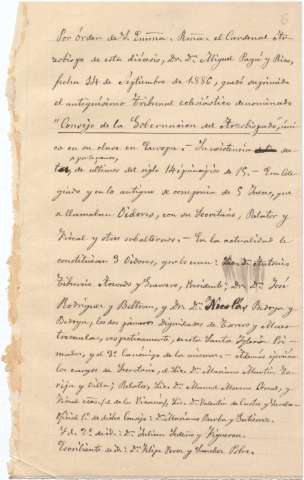 6
Por órden de S. Emma. Rma. el Cardenal Ar-
zobispo de esta diócesis, Dr. Dn. Miguel Payá y Rico,
fecha 24 de Septiembre de 1886, quedó suprimido
el antiquísimo Tribunal eclesiástico denominado
"Consejo de la Gobernacion del Arzobispado", úni-
co en su clase en Europa. - Su existencia
de últimos del siglo 14 ó principios de 15. - Era Cole-
giado y en lo antiguo se componia de 5 Jueces, que
se llamaban Oidores, con su Secretario, Relator y
Fiscal y otros subalternos. - En la actualidad le
constituian 3 Oidores, que lo eran: Dn. Antonio
Presidente; Dr. Dn. José
Rodriguez y Beltran, y Dr. Dn. Nicolás Bedoya y
Bedoya, los dos primeros Dignidades de Tesorero y Maes-
trescuela, respectivamente, de esta Santa Iglesia Pri-
mada, y el 3º Canónigo de la misma. - Además ejercían
los cargos de Secretario, el Lic. Dn. Mariano Martin
y Relator, Lic. Dn. Manuel
Fiscal Lic. Dn. Valentin
Oficial 1º de dicho Consejo: Dn. Mariano y Gutierrez.
Id. 2º de id: Dn. Julian y Figueroa.
Escribiente de id: Dn. Felipe y Sanchez